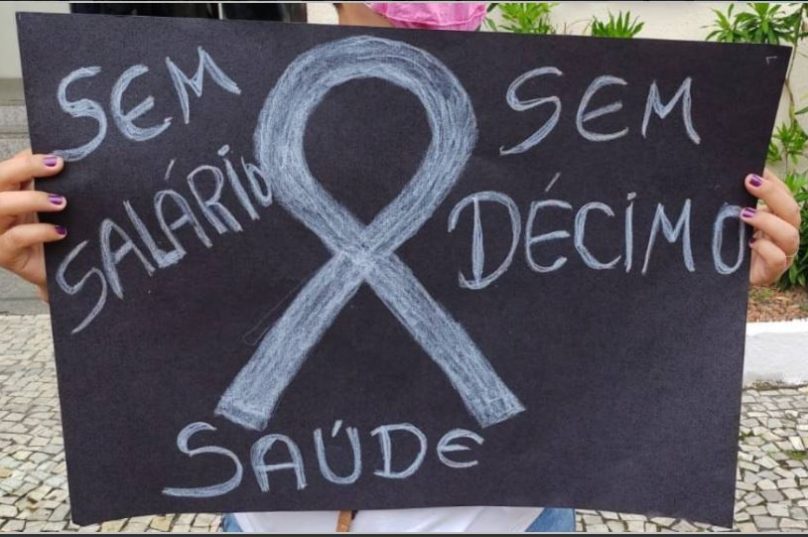 SEM
SALÁRIO
SEM
DÉCIMO
SAÚDE